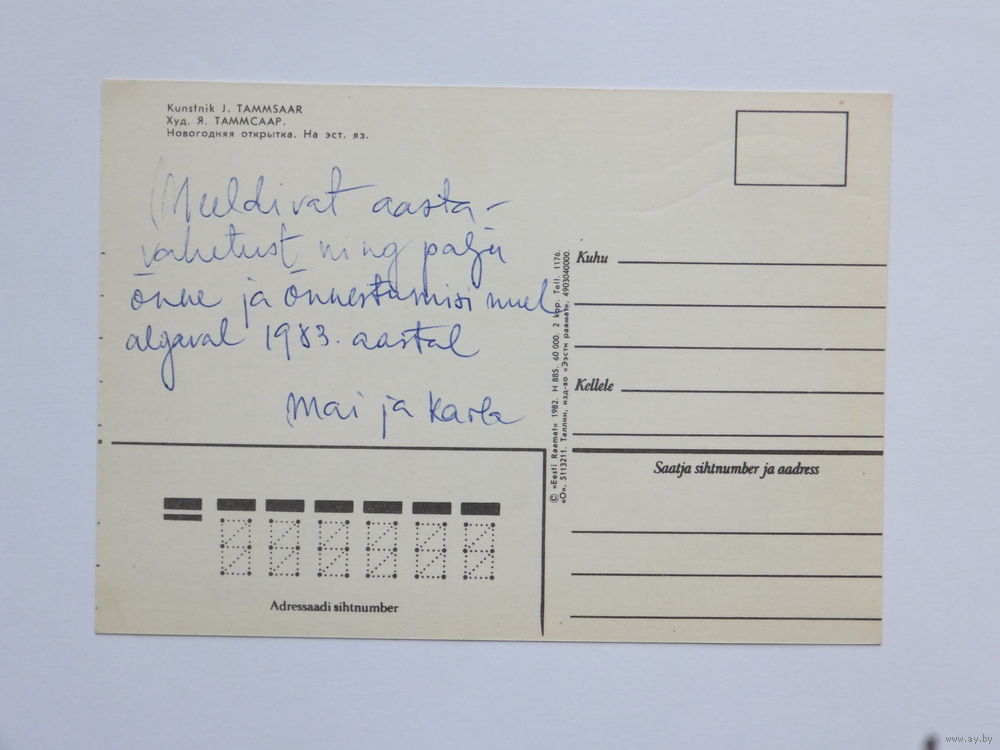 Kunstnik J. TAMMSAAR
Худ. Я. ТАММСААР.
Новогодняя открытка. На эст. яз.
Meeldivat aasta-
vahetust ning palju
õnne ja õnnestumisi uuel
algaval 1983. aastal
Mai ja Karla
© «Eesti Raamat» 1982. H 885. 60 000. 2 kop. Tell. 1176.
«О». 5113211. Таллин, изд-во «Ээсти раамат». 4903040000.
Kuhu
Kellele
Saatja sihtnumber ja aadress
Adressaadi sihtnumber
www.ay.by